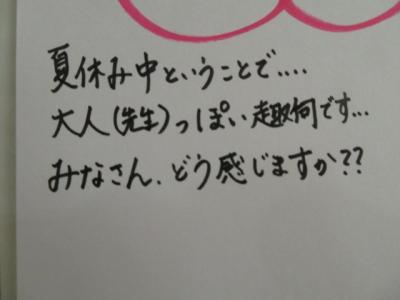 夏休み中ということで....
大人(先生)っぽい趣向です...
みなさん、どう感じますか??